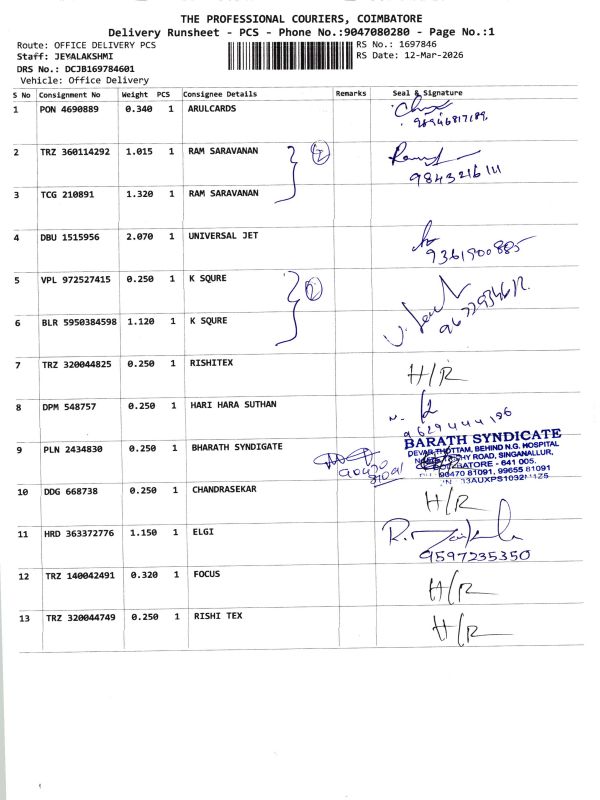 THE PROFESSIONAL COURIERS, COIMBATORE
Delivery Runsheet - PCS - Phone No.:9047080280 - Page No.:1
Route: OFFICE DELIVERY PCS
RS No.: 1697846
Staff: JEYALAKSHMI
RS Date: 12-Mar-2026
DRS No.: DCJB169784601
Vehicle: Office Delivery
S No Consignment No Weight PCS Consignee Details Remarks Seal & Signature
1 PON 4690889 0.340 1 ARULCARDS
2 TRZ 360114292 1.015 1 RAM SARAVANAN 2
9843216111
3 TCG 210891 1.320 1 RAM SARAVANAN
4 DBU 1515956 2.070 1 UNIVERSAL JET
9361900885
5 VPL 972527415 0.250 1 K SQURE 2
6 BLR 5950384598 1.120 1 K SQURE
7 TRZ 320044825 0.250 1 RISHITEX H/R
8 DPM 548757 0.250 1 HARI HARA SUTHAN
9629444196
9 PLN 2434830 0.250 1 BHARATH SYNDIGATE
BARATH SYNDICATE
DEVAR THOTTAM, BEHIND N.G. HOSPITAL
ROAD, SINGANALLUR,
COIMBATORE - 641 005.
90470 81091, 99655 81091
90470
81091
10 DDG 668738 0.250 1 CHANDRASEKAR H/R
11 HRD 363372776 1.150 1 ELGI
9597235350
12 TRZ 140042491 0.320 1 FOCUS H/R
13 TRZ 320044749 0.250 1 RISHI TEX H/R